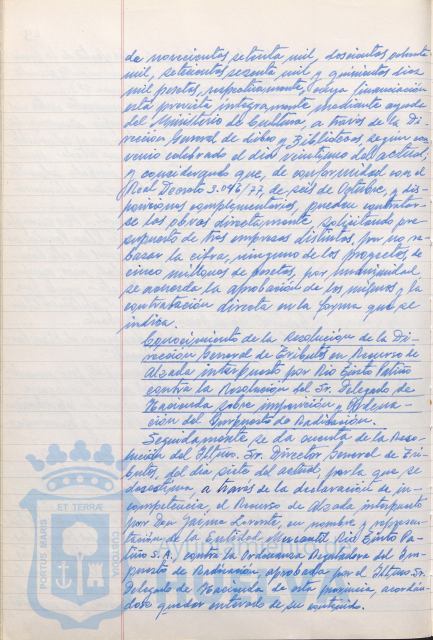 de novecientas setenta mil, doscientas ochenta
mil, setecientas sesenta mil y quinientas diez
mil pesetas, respectivamente, cuya financiación
está prevista íntegramente mediante ayuda
del Ministerio de Cultura, a través de la Di-
rección General de Libro y Bibliotecas, según con-
venio celebrado el día veintiuno del actual,
y considerando que, de conformidad con el
Real Decreto 3.046/77, de seis de Octubre, y dis-
posiciones complementarias, pueden contratar-
se las obras directamente, solicitando pre-
supuesto de tres empresas distintas, por no re-
basar la cifra, ninguno de los proyectos, de
cinco millones de pesetas, por unanimidad
se acuerda la aprobación de los mismos y la
contratación directa en la forma que se
indica.
Conocimiento de la Resolución de la Di-
rección General de Tributos en Recurso de
Alzada interpuesto por Rio Tinto Patiño
contra la Resolución del Sr. Delegado de
Hacienda sobre imposición y Ordena-
ción del Impuesto de Radicación.
Seguidamente se da cuenta de la Reso-
lución del Iltmo. Sr. Director General de Tri-
butos, del día siete del actual, por la que se
desestima, a través de la declaración de in-
competencia, el Recurso de Alzada interpuesto
por Don Jaime en nombre y represen-
tación de la Entidad Mercantil Rio Tinto Pa-
tiño S.A. contra la Ordenanza Reguladora del Im-
puesto de Radicación aprobada por el Iltmo. Sr.
Delegado de Hacienda de esta provincia, acordán-
dose quedar enterado de su contenido.
PORTUS MARIS
ET TERRAE
CUSTODIA